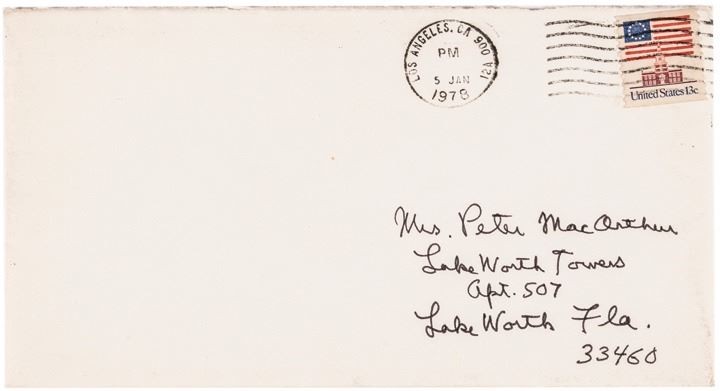 LOS ANGELES, CA 900
PM
5 JAN
1978
United States 13c
Mrs. Peter MacArthur
Lake Worth Towers
Apt. 507
Lake Worth Fla.
33460